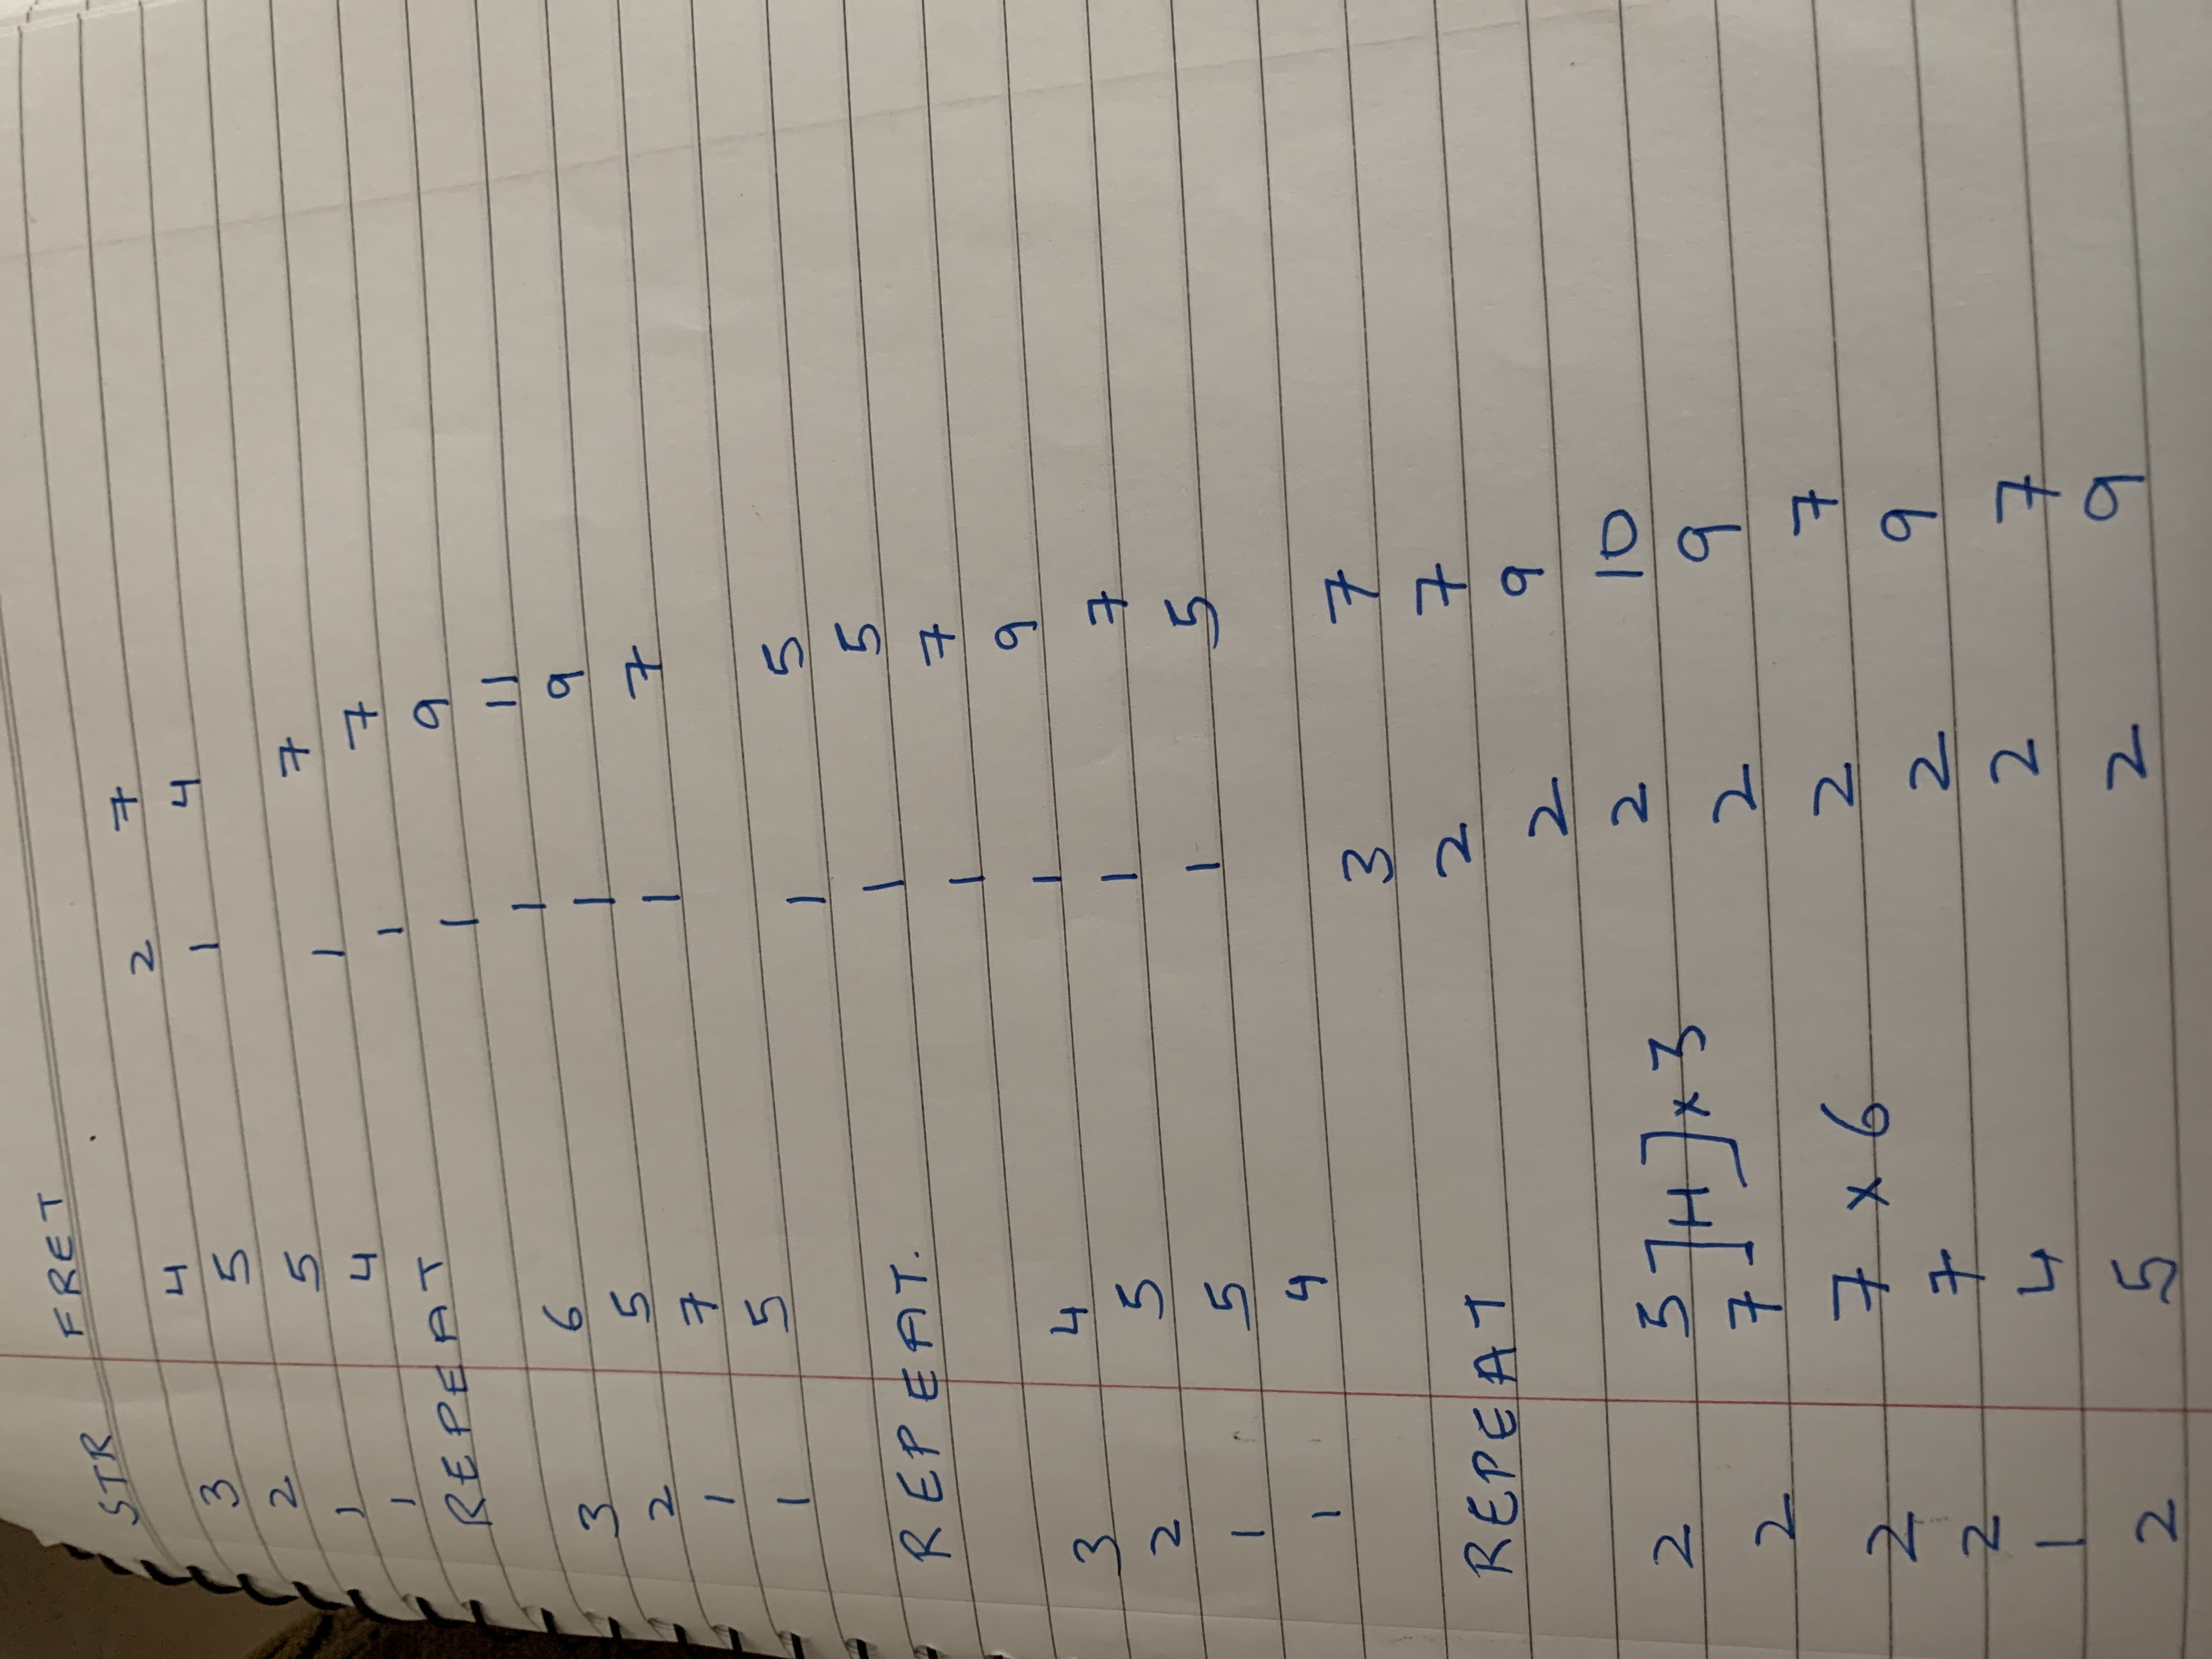 STR FRET
3 4
2 5
1 5
1 4
REPEAT
3 6
2 5
1 7
1 5
REPEAT.
3 4
2 5
1 5
1 4
REPEAT
2 5
2 7 ]H] x 3
2 7 x 6
2 7
1 4
2 5
2 7
1 4
1 7
1 7
1 9
1 11
1 9
1 7
1 5
1 5
1 7
1 9
1 7
1 5
3 7
2 7
2 9
2 10
2 9
2 7
2 9
2 7
2 9